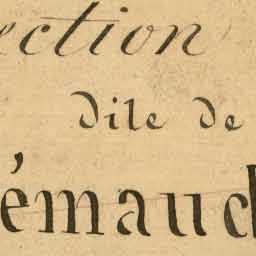 ection
dite de
émauc